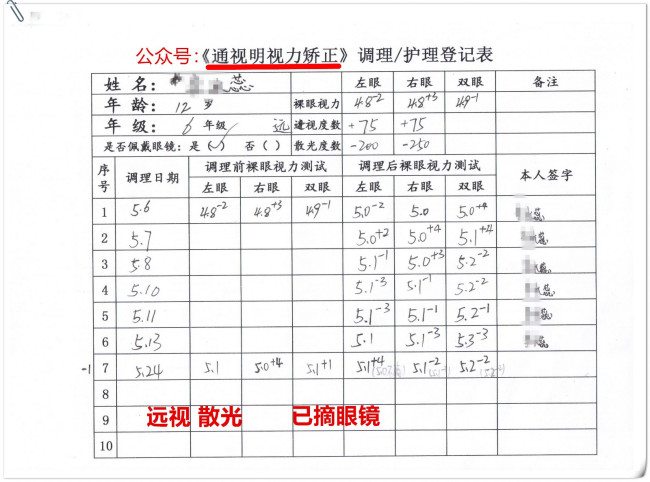 公众号:《通视明视力矫正》调理/护理登记表
姓名: 蕊 左眼 右眼 双眼 备注
年龄: 12 岁 裸眼视力 4.8-2 4.8+3 4.9-1
年级: 6 年级 远视度数 +75 +75
是否佩戴眼镜: 是(✓) 否( ) 散光度数 -200 -250
序号 调理日期 调理前裸眼视力测试 调理后裸眼视力测试 本人签字
左眼 右眼 双眼 左眼 右眼 双眼
1 5.6 4.8-2 4.8+3 4.9-1 5.0-2 5.0 5.0+4 蕊
2 5.7 5.0+2 5.0+4 5.1+4 蕊
3 5.8 5.1-1 5.0+3 5.2-2 蕊
4 5.10 5.1-3 5.1-1 5.2-2 蕊
5 5.11 5.1-3 5.1-1 5.2-1 蕊
6 5.13 5.1 5.1-3 5.3-3 蕊
-1 7 5.24 5.1 5.0+4 5.1+1 5.1+4 5.1-2 5.2-2
8
9 远视 散光 已摘眼镜
10